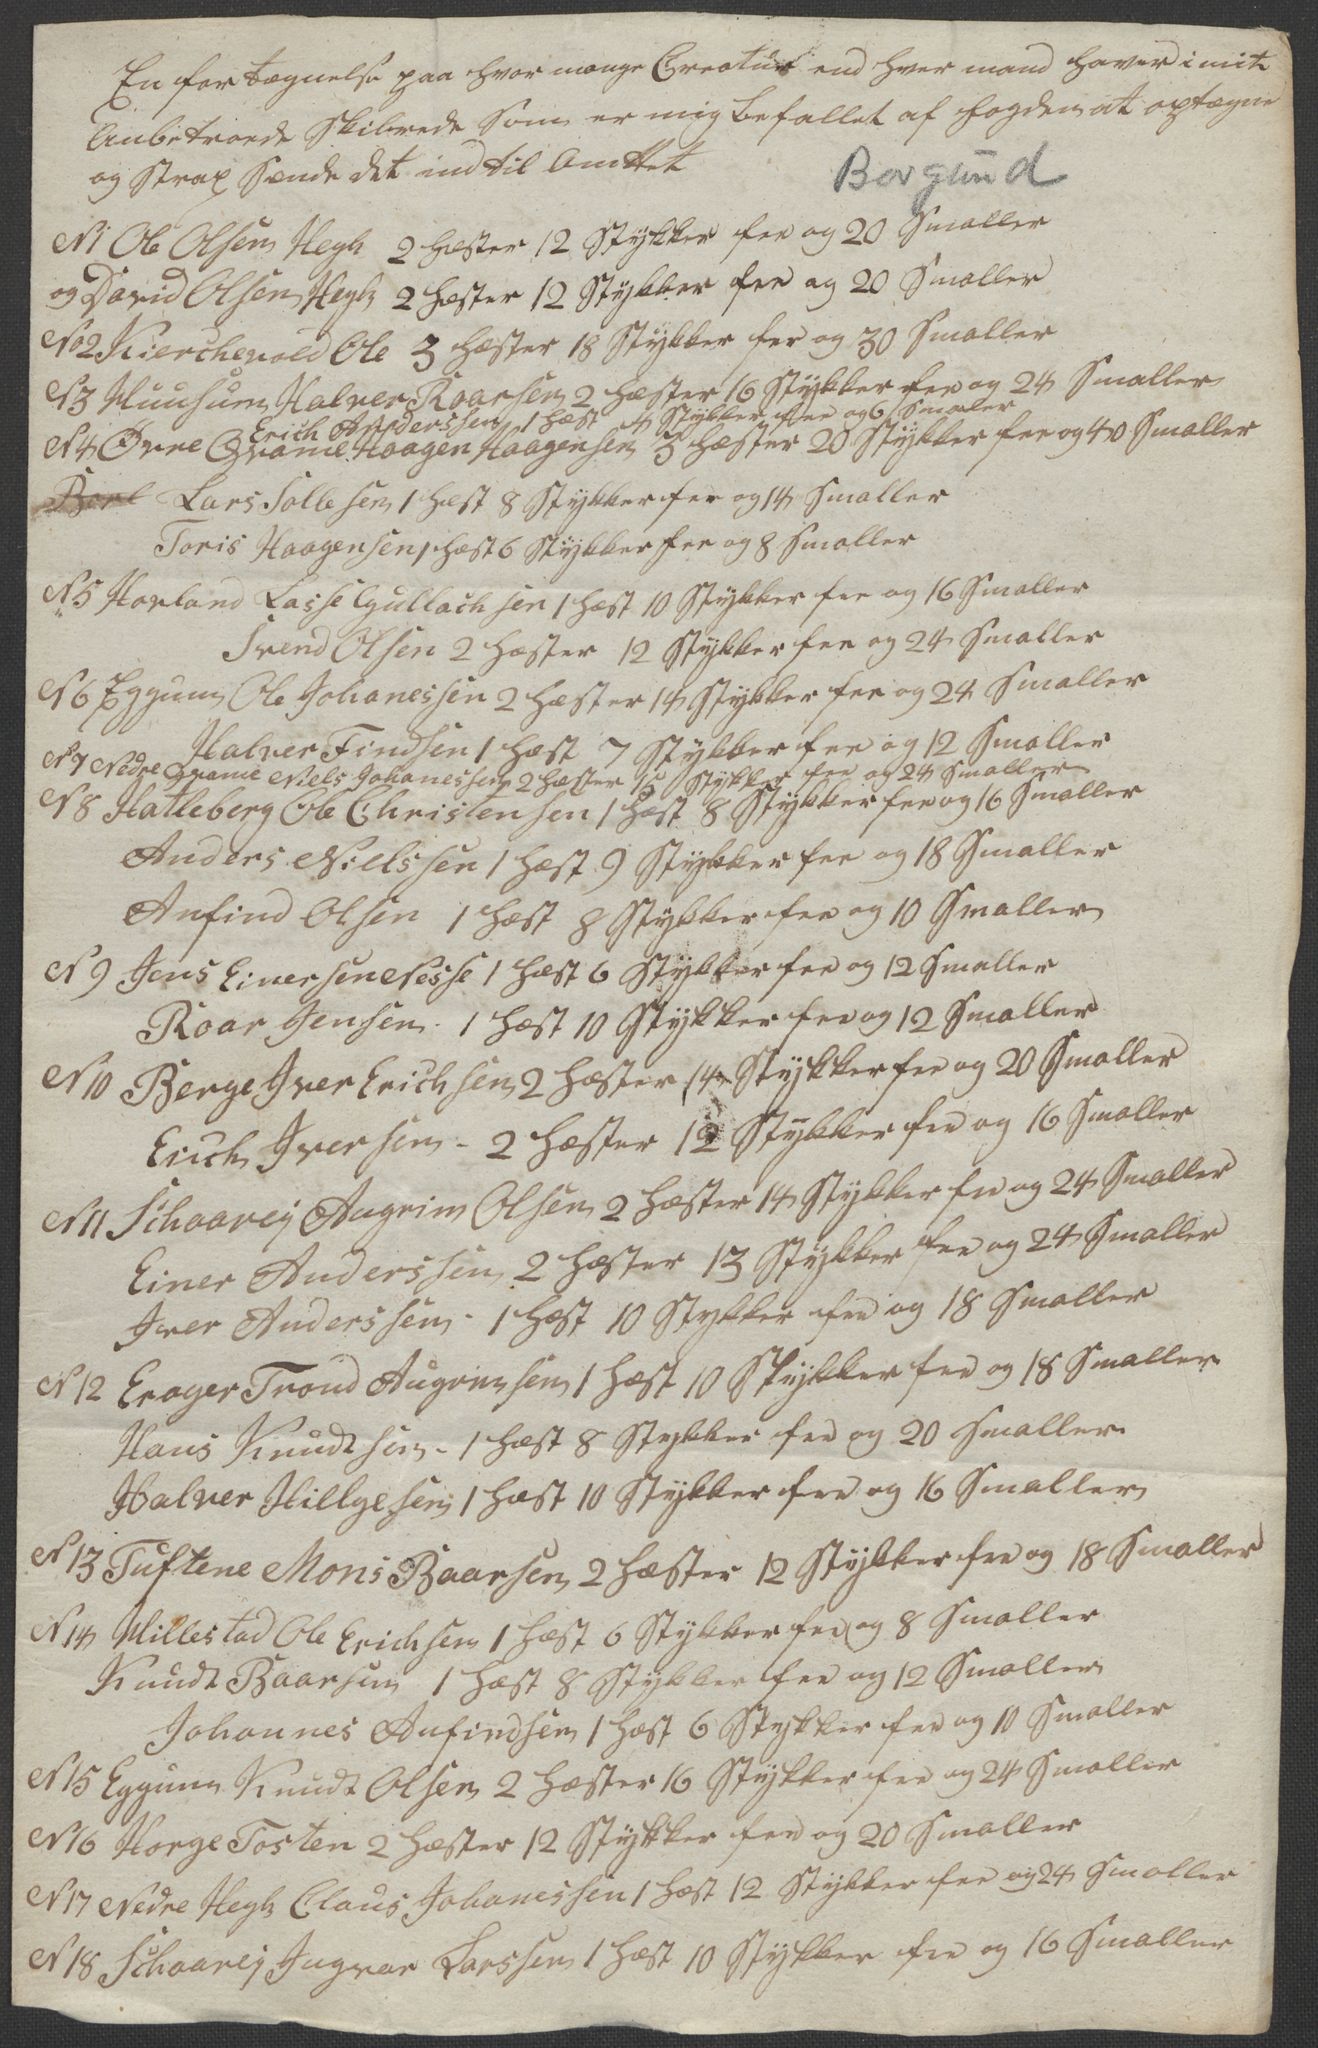 En fortægnelse paa hvor mange Creatur end hver mand haver i mit
Anbetroede Skibrede som er mig befallet af fogden at optægne
og Strax Sænde det ind til Amttet
Borgund
N1 Ole Olsen Hegh 2 hæster 12 Stykker fee og 20 Smaller
og David Olsen Hegh 2 hæster 12 Stykker fee og 20 Smaller
No2 Kierchevold Ole 3 hæster 18 Stykker fee og 30 Smaller
N3 Huusum Halver Roarsen 2 hæster 16 Stykker fee og 24 Smaller
Erich Anderssen 1 hæst 4 Stykker fee og 6 Smaler
N4 Øvre Qvame Haagen Haagensen 3 hæster 20 Stykker fee og 40 Smaller
Lars Solle sen 1 hæst 8 Stykker fee og 14 Smaller
Toris Haagensen 1 hæst 6 Stykker fee og 8 Smaller
N5 Hovland Lasse Gullach sen 1 hæst 10 Stykker fee og 16 Smaller
Svend Olsen 2 hæster 12 Stykker fee og 24 Smaller
N6 Eggum Ole Johanessen 2 hæster 14 Stykker fee og 24 Smaller
Halver Findsen 1 hæst 7 Stykker fee og 12 Smaller
N7 Nedre Qvame Niels Johanessen 2 hæster 15 Stykker fee og 24 Smaller
N8 Hatleberg Ole Christensen 1 hæst 8 Stykker fee og 16 Smaller
Anders Nielssen 1 hæst 9 Stykker fee og 18 Smaller
Anfind Olsen 1 hæst 8 Stykker fee og 10 Smaller
N9 Jens Einersen Nesse 1 hæst 6 Stykker fee og 12 Smaller
Roar Jensen 1 hæst 10 Stykker fee og 12 Smaller
N10 Berge Iver Erichsen 2 hæster 14 Stykker fee og 20 Smaller
Erich Iversen - 2 hæster 12 Stykker fee og 16 Smaller
N11 Schaarej Augrim Olsen 2 hæster 14 Stykker fee og 24 Smaller
Einer Anderssen 2 hæster 13 Stykker fee og 24 Smaller
Iver Anderssen - 1 hæst 10 Stykker fee og 18 Smaller
N12 Erager Trond Augrimsen 1 hæst 10 Stykker fee og 18 Smaller
Hans Knudtsen - 1 hæst 8 Stykker fee og 20 Smaller
Halver Hillgesen 1 hæst 10 Stykker fee og 16 Smaller
N13 Tuftene Mons Baarsen 2 hæster 12 Stykker fee og 18 Smaller
N14 Hillestad Ole Erichsen 1 hæst 6 Stykker fee og 8 Smaller
Knudt Baarsen 1 hæst 8 Stykker fee og 12 Smaller
Johannes Anfindsen 1 hæst 6 Stykker fee og 10 Smaller
N15 Eggum Knudt Olsen 2 hæster 16 Stykker fee og 24 Smaller
N16 Horge Tosten 2 hæster 12 Stykker fee og 20 Smaller
N17 Nedre Hegh Claus Johanessen 1 hæst 12 Stykker fee og 24 Smaller
N18 Schaarej Ingvar Larssen 1 hæst 10 Stykker fee og 16 Smaller